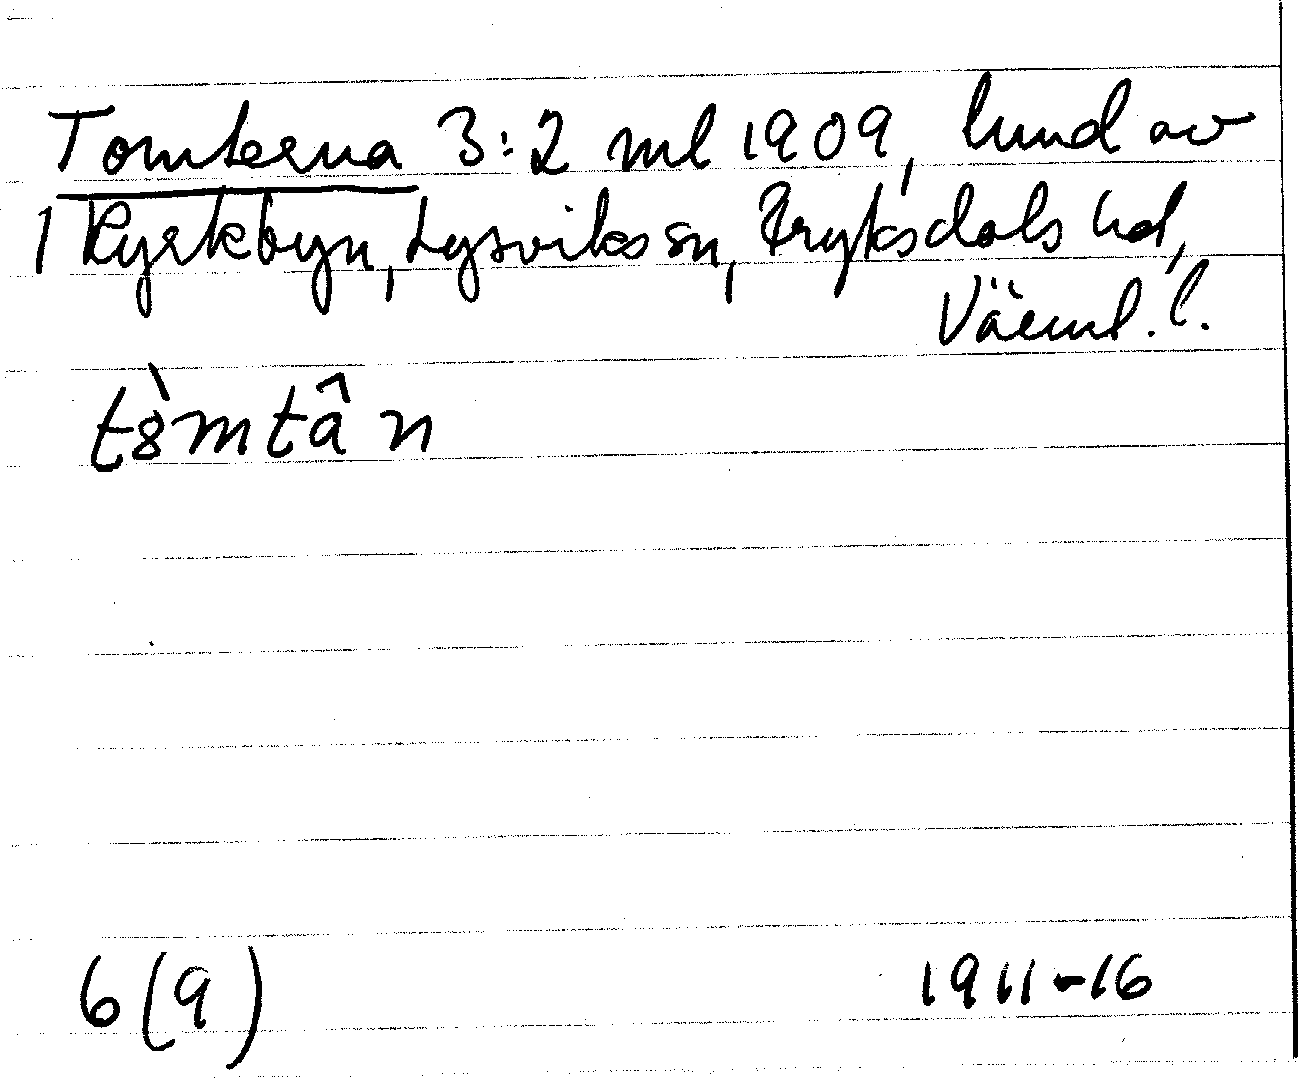 Tomterna 3:2 ml 1909, lund av
1 Kyrkbyn, Lysviks sn, Fryksdals hd,
Värml. l.
tòmtân
6(9)
1911-16